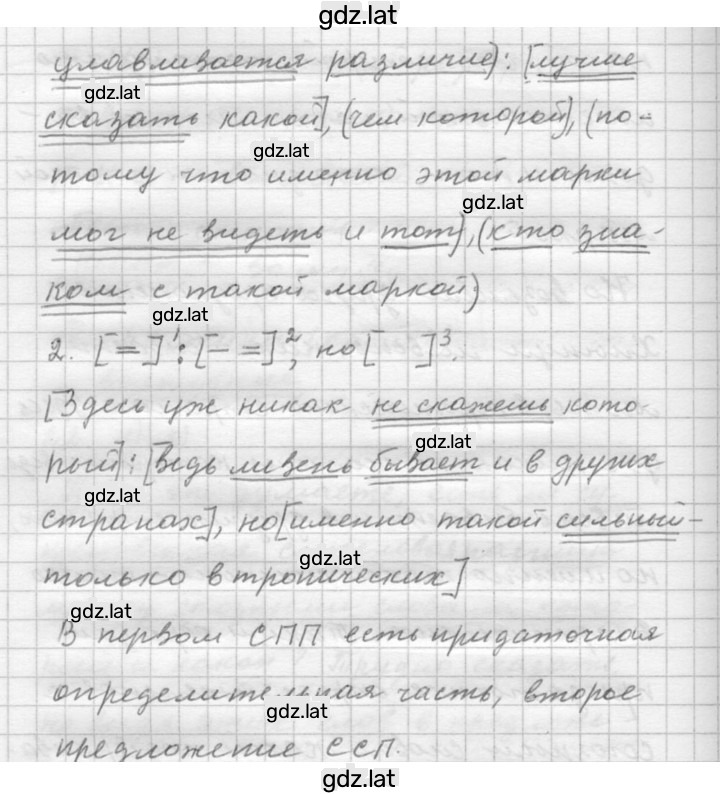 gdz.lat
улавливается различие): [лучше
gdz.lat
сказать какой], (чем которой), (по-
gdz.lat
тому что именно этой марки
gdz.lat
мог не видеть и тот), (кто зна-
ком с такой маркой)
gdz.lat
2. [ = ]¹: [– =]², но [ ]³.
[Здесь уже никак не скажешь кото-
gdz.lat
рый]: [ведь ливень бывает и в других
gdz.lat
странах], но [именно такой сильный -
gdz.lat
только в тропических]
gdz.lat
В первом СПП есть придаточная
определительная часть, второе
gdz.lat
предложение ССП.
gdz.lat